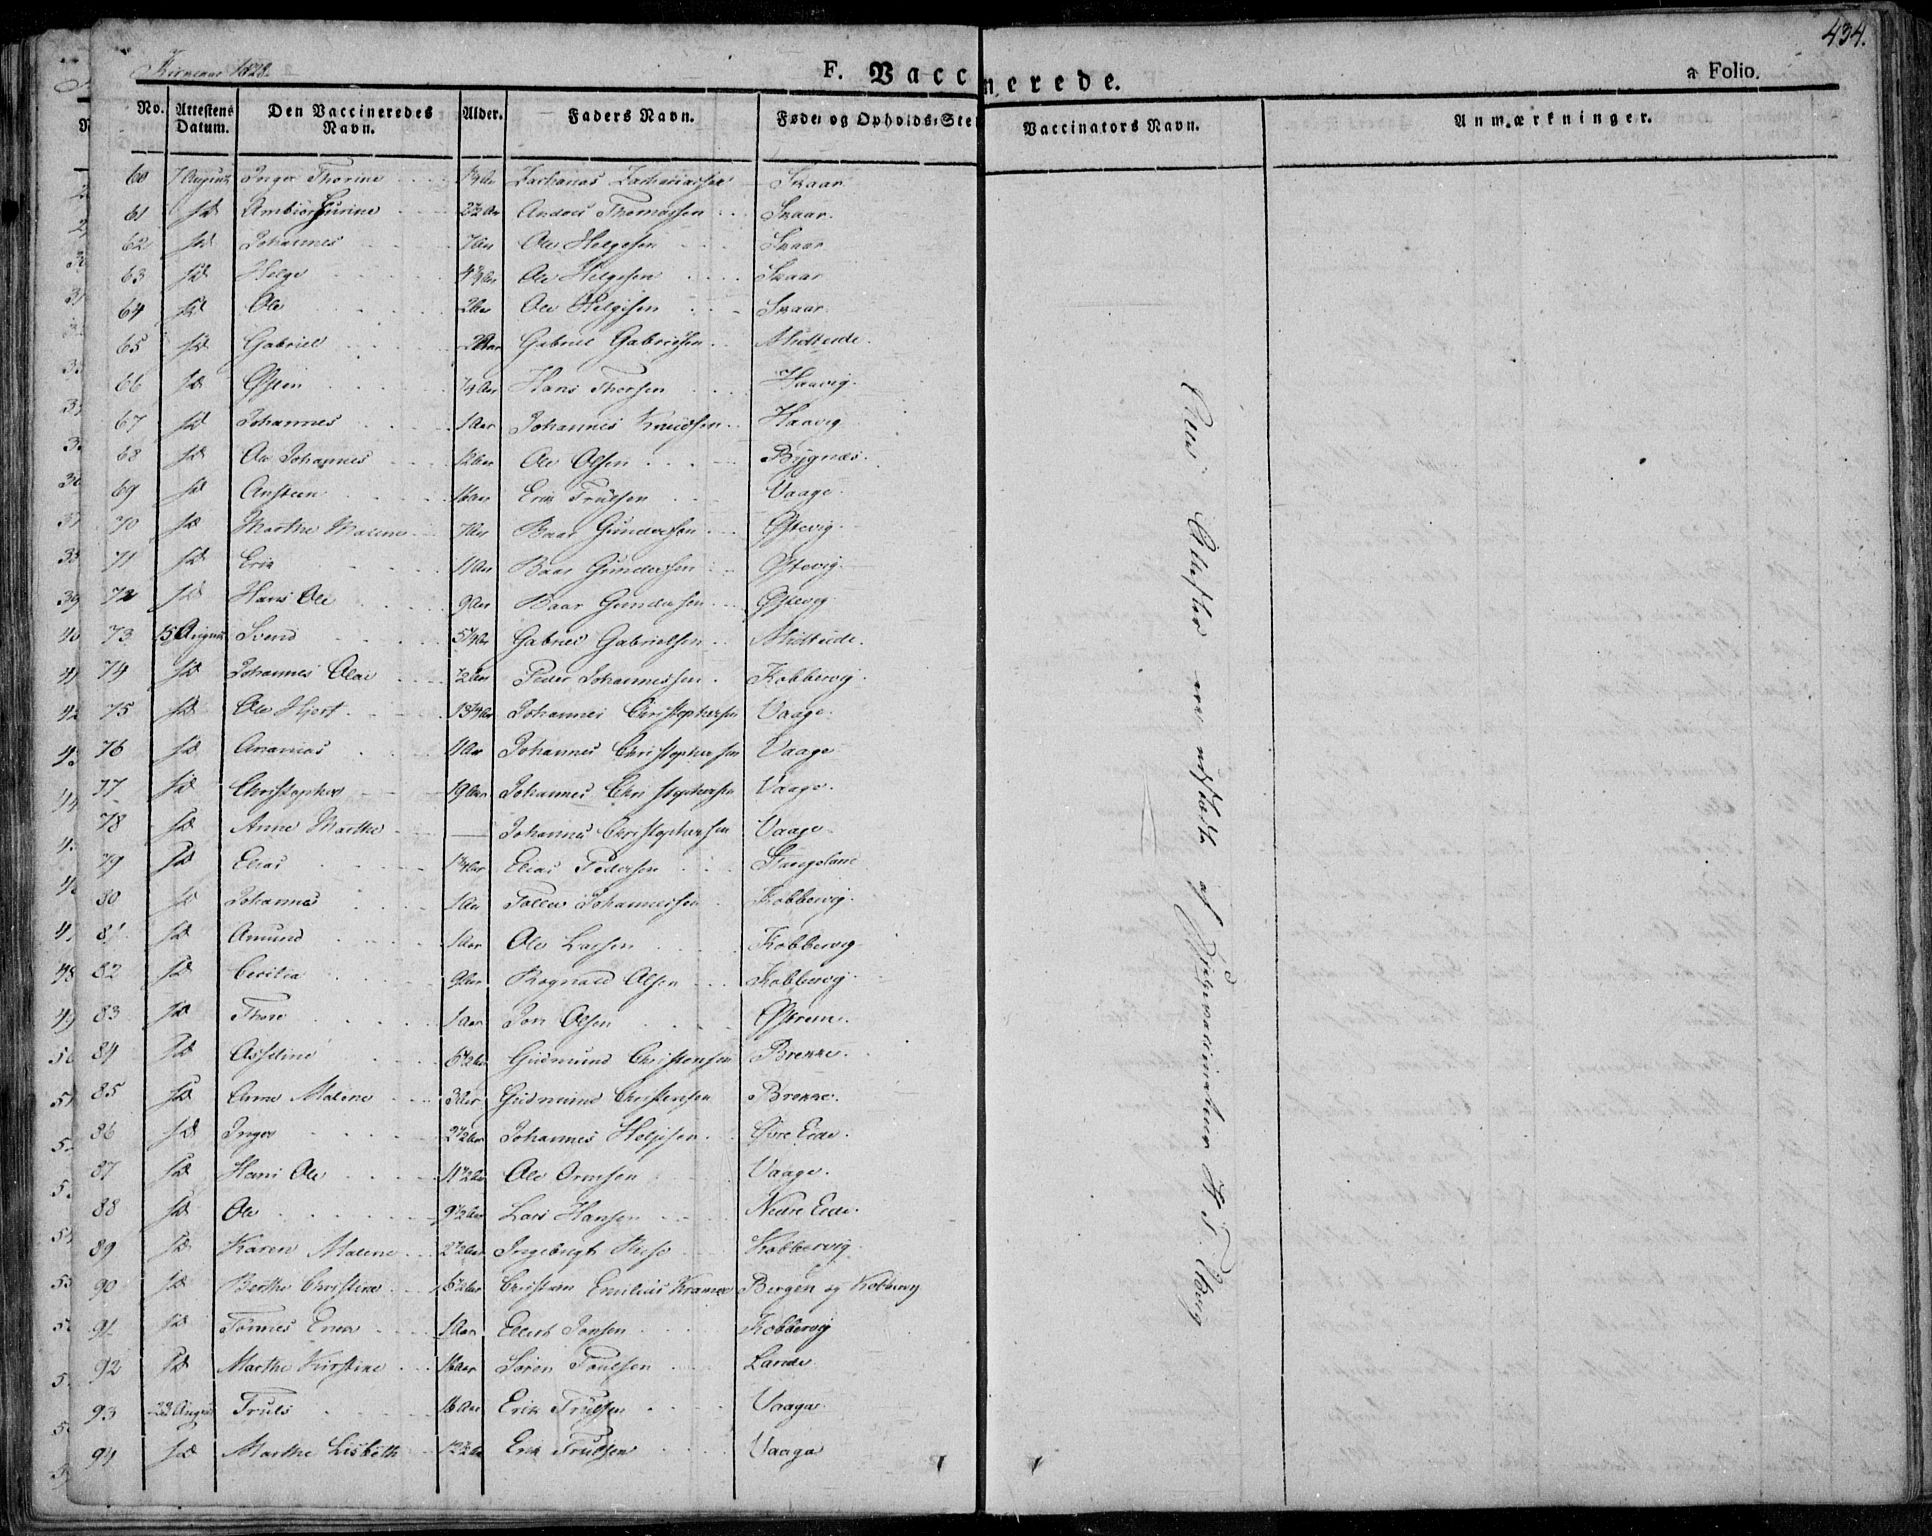 434.
1828.
F. Vaccinerede.
a Folio.
No. Attestens Datum. Den Vaccineredes Navn. Alder. Faders Navn. Føde- og Opholds-Sted Vaccinators Navn. Anmærkninger.
60 7 August Inger Thorine Zacharias Zachariassen Skaar
61 Id Thomassen Skaar.
62 Id Johannes 7 Aar Ole Helgesen Skaar
63 Id Helge 4 1/4 Aar Ole Helgesen Skaar
64 Id Ole 2 Aar Ole Helgesen Skaar
65 Id Gabriel Gabriel Gabrielsen Midteide.
66 Id Østen Hans Thorsen Haavig.
67 Id Johannes 1 Aar Johannes Knudsen Haavig
68 Id Ole Johannes Ole Olsen Bygnæs.
69 Id Ansteen Erik Trulsen Vaage.
70 Id Marthe Malene 7 Aar Baar Gundersen Østevig.
71 Id Erik Baar Gundersen Østevig.
72 Id Hans Ole 9 Aar Baar Gundersen Østevig
73 15 August Svend 5 1/4 Aar Gabriel Gabrielsen Midteide.
74 Id Johannes Olai Peder Johannessen Kobbervig.
75 Id Ole Hjort Johannes Christophersen Vaage.
76 Id Ananias Johannes Christophersen Vaage
77 Id Christopher 19 Aar Johannes Christophersen Vaage.
78 Id Anne Marthe — Johannes Christophersen Vaage
79 Id Elias Elias Pedersen Stangeland
80 Id Johannes 1 Aar Johannessen Kobbervig.
81 Id Amund 1 Aar Ole Larsen Kobbervig
82 Id Cecilia 9 Aar Rognald Olsen Kobbervig.
83 Id Thore 1 Aar Jon Olsen Østrem.
84 Id Asseline 6 1/2 Aar Gudmund Christensen Brekke.
85 Id Anne Malene 3 Aar Gudmund Christensen Brekke.
86 Id Inger 2 1/2 Aar Johannes Helgesen Øvre Eide.
87 Id Hans Ole Ole Ormsen Vaage.
88 Id Ole 9 1/2 Aar Lars Hansen Nedre Eide.
89 Id Karen Malene 2 1/2 Aar Ingebrigt Kobbervig.
90 Id Berthe Christine 6 1/2 Aar Christian Emilius Kramer Bergen og Kobbervig
91 Id Tønnes 1 Aar Ellert Jonsen Kobbervig
92 Id Marthe Kirstine Søren Poulsen Lande
93 23 August Truls 16 Aar Erik Trulsen Vaage
94 Id Marthe Lisbeth 12 1/2 Aar Erik Trulsen Vaage
Attester ere udstædte af Hjelpevaccinateur